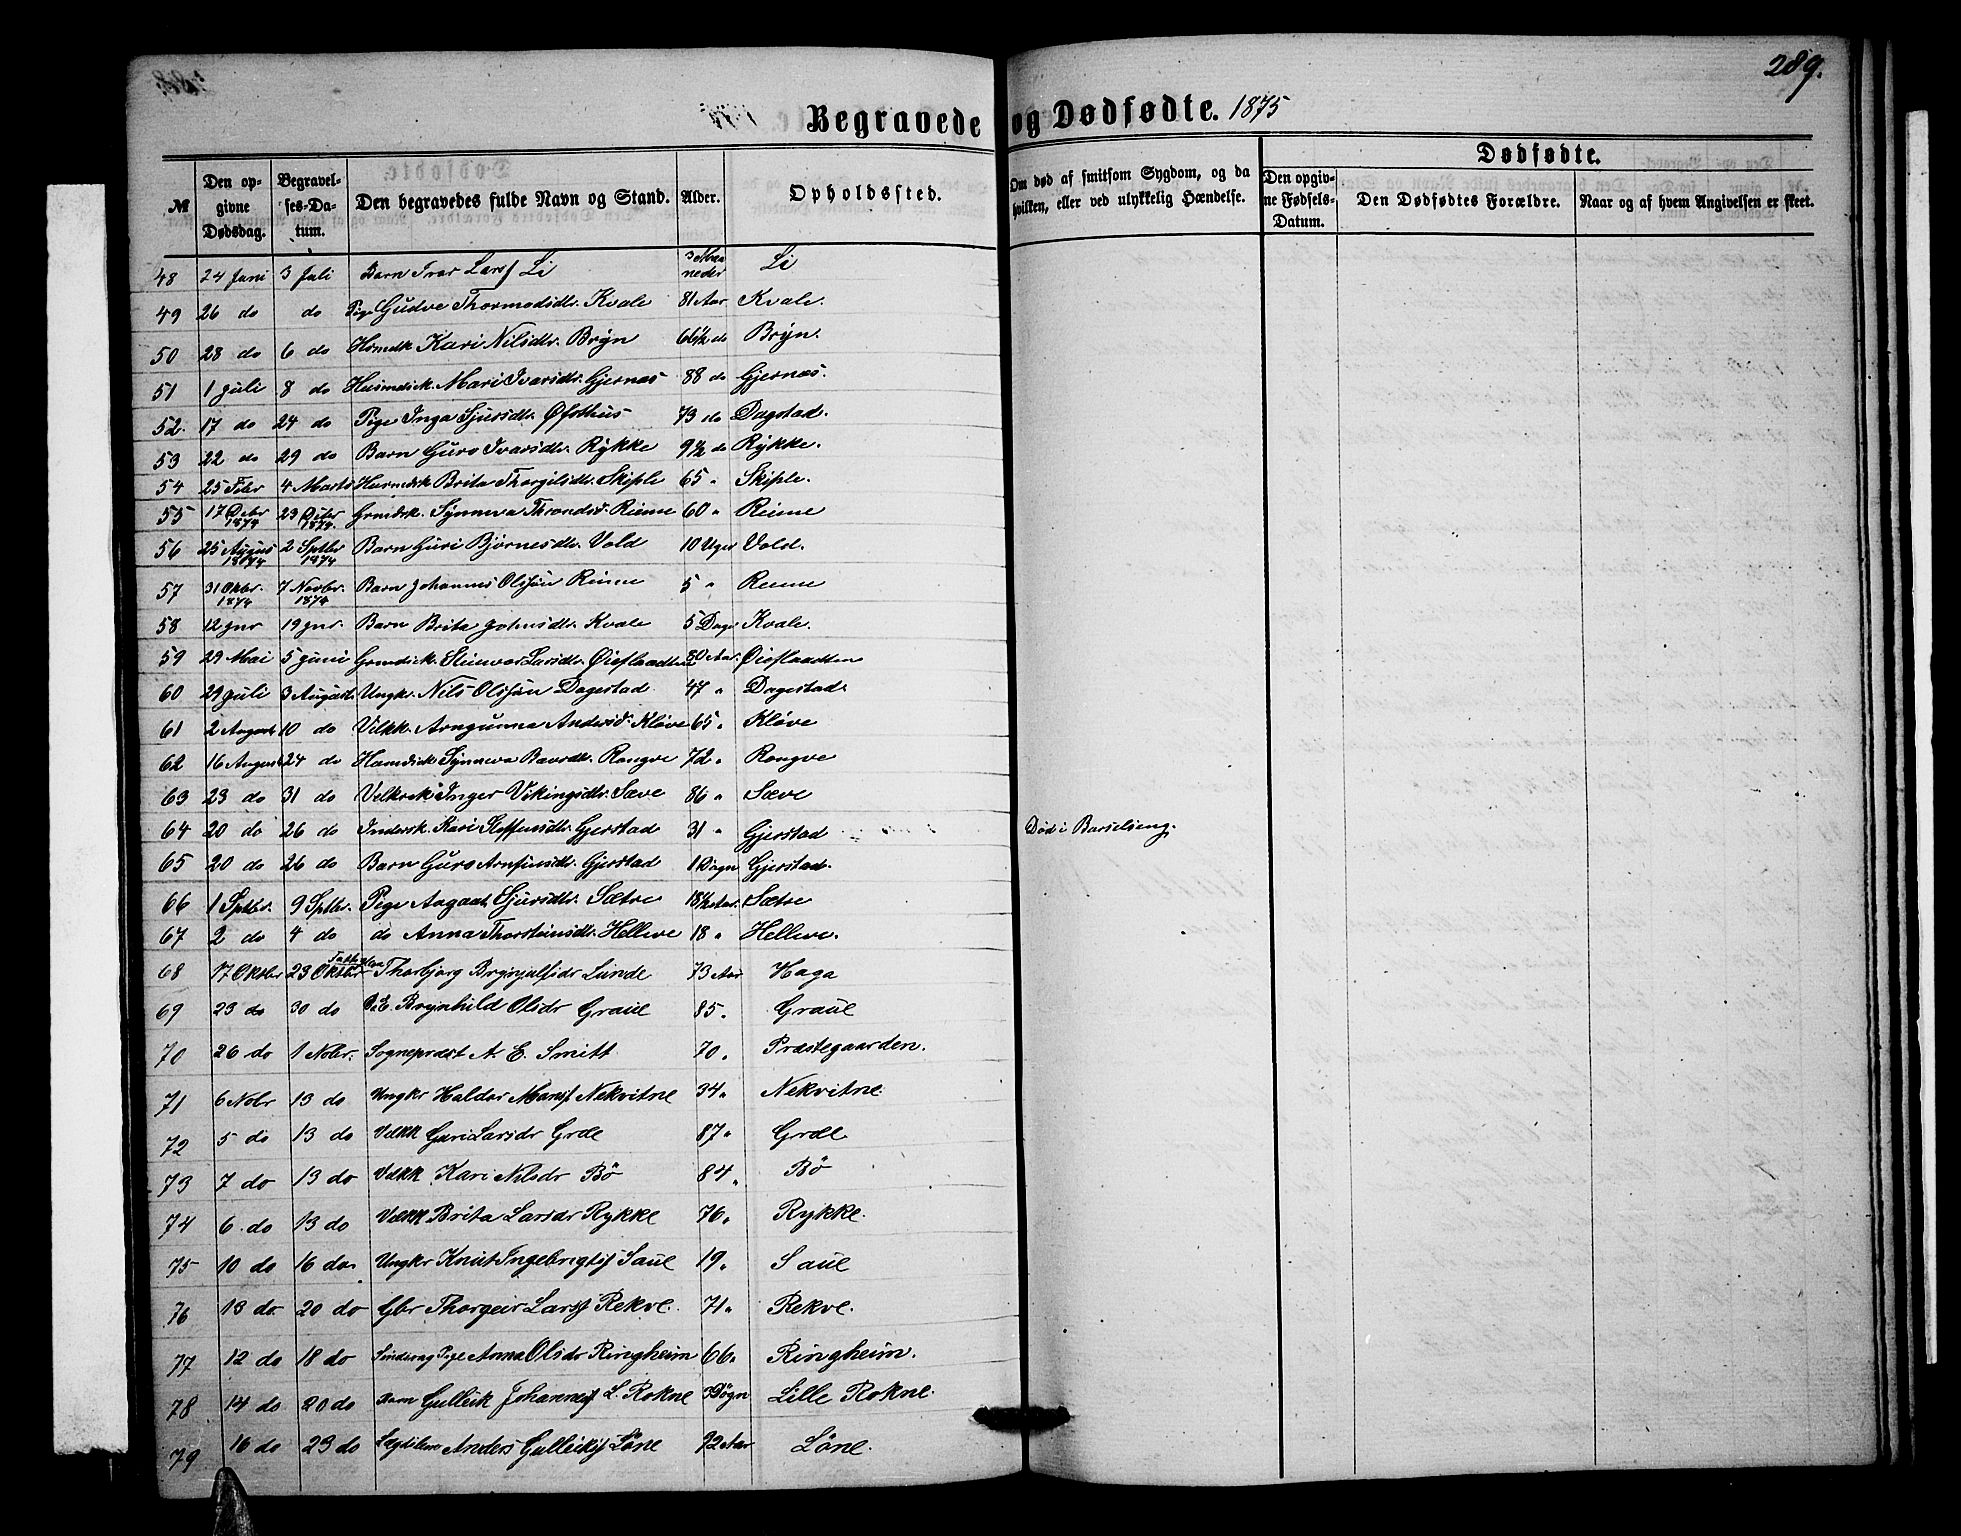 289.
Begravede og Dødfødte. 1875
№ | Den opgivne Dødsdag. | Begravelses-Datum. | Den begravedes fulde Navn og Stand. | Alder. | Opholdssted. | Om død af smitsom Sygdom, og da hvilken, eller ved ulykkelig Hændelse. | Dødfødte. Den opgivne Fødsels-Datum. | Den Dødfødtes Forældre. | Naar og af hvem Angivelsen er skeet.
48 24 Juni 3 Juli Barn Ivar Larsf Li 3 Maaneder Li
49 26 do do Pige Gudve Thormodsdtr. Kvale 81 Aar Kvale.
50 28 do 6 do Hsmdk Kari Nilsdtr. Bryn 66½ do Bryn.
51 1 Juli 8 do Husmdsk. Mari Ivarsdtr. Gjernæs 88 do Gjernæs.
52. 17 do 24 do Pige Inga Sjursdtr. Øfsthus 73 do Dagstad.
53 22 do 29 do Barn Guro Ivarsdtr. Rykke 9½ do Rykke.
54 25 Febr 4 Marts Husmdsk Brita Thorgilsdtr. Skiple 65 " Skiple.
55 17 Debr 1874 23 Debr 1874. Grmdsk. Synneva Throndsd. Rinne 60 " Rinne
56 25 Augus 1874 2 Sptbr 1874 Barn Guri Bjørnesdtr. Vold 10 Uger Vold.
57 31 Oktbr. 1874 7 Novbr. 1874 Barn Johannes Olsson Rinne 5 " Rinne
58 12 Jnr 19 Jnr. Barn Brita Johnsdtr. Kvale 5 Dage Kvale.
59 29 Mai 5 Juni Grmdsk. Steinvor Larsdtr. Øieflaadten 80 Aar. Øieflaadten
60 29 Juli 3 August Ungkr. Nils Olsson Dagestad 47 " Dagestad.
61 2 August 10 do Vilkk. Arngunna Andersd. Kløve 65 " Kløve
62 16 August 24 do Husmdsk Synneva Baardtr. Rongve 72 " Rongve
63 23 do 31 do Velksk Inger Vikingsdtr. Sæve 86 " Sæve
64 20 do 26 do Indersk. Kari Steffensdtr. Gjerstad 31 " Gjerstad Død i Barselseng.
65 20 do 26 do Barn Guro Arnfinsdtr. Gjerstad 1 Døgn Gjerstad.
66 1 Sptbr. 9 Sptbr. Pige Aagaat Sjursdtr. Sætre 18½ Aar. Sætre
67 2 do 4 do do Anna Thorsteinsdtr. Helleve 18 " Helleve.
68 17 Oktbr 23 Oktbr Thorbjørg Brynjulfsdr Lunde 73 Aar Haga
69 23 do 30 do Brynhild Olsdr Graue 85 " Graue
70 26 do 1 Nobr. Sogneprest A. E. Smitt 70 " Præstegaarden.
71 6 Nobr 13 do Ungkr Haldor Monsf Nekvitne 34 " Nekvitne
72 5 do 13 do Vdkk Guri Larsdr Grøe 87 " Grøe
73 7 do 13 do Vdkk Kari Nilsdr Bø 84 " Bø
74 6 do 13 do Vdkk Brita Larsdr Rykke 76 " Rykke.
75 10 do 16 do Ungkr Knut Ingebrigtsf Saue 19 " Saue
76 13 do 20 do Gbr Thorgeir Larsf Rekve. 71 " Rekve.
77 12 do 18 do Sindsvag Pige Anna Olsdr Ringheim 66 " Ringheim.
78 14 do 20 do Barn Gulleik Johannesf L. Rokne 3 Døgn Lille Rokne.
79 16 do 23 do Lægdslem Anders Gulleiksf Løne 72 Aar Løne.